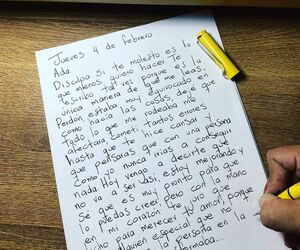 Jueves 4 de febrero
Ada
Disculpa si te molesto es lo
que menos quiero hacer. Te
escribo tal vez porque es la
única manera de que me leas.
Perdón, estaba equivocado en
como hacia las cosas, dejé que
todo lo que me rodeaba me
afectara, cometí tantos errores
hasta que te hice cansar y
que pensaras que con una persona
como yo nunca irías a conseguir
nada. Hoy vengo a decirte que
no va a ser así, estoy mejorando
Sé que es muy pronto para que
lo puedas creer, pero con la mano
en mi corazón te juro que
para merecer tu amor, porque
alguien especial que no la
la persona en la